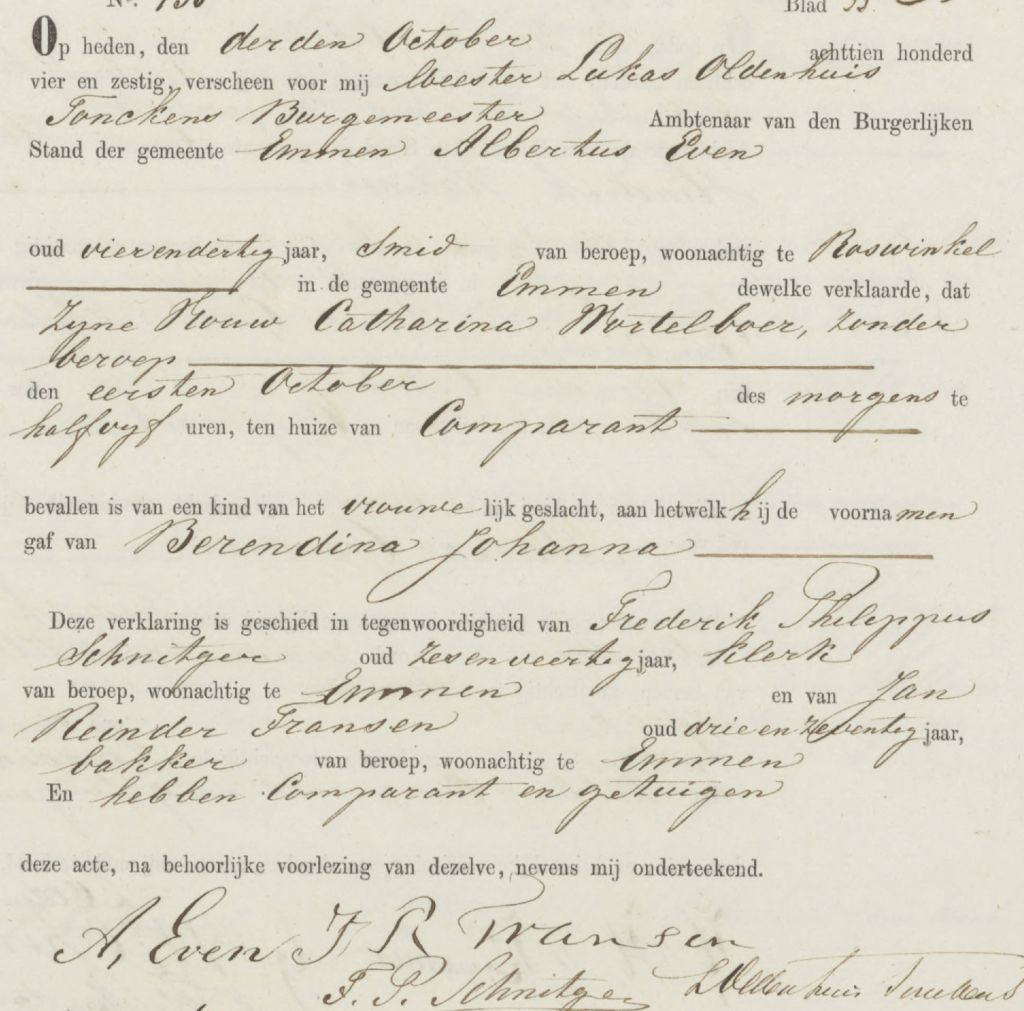 No. 150 Blad 33.
Op heden, den derden October achttien honderd
vier en zestig, verscheen voor mij Meester Lukas Oldenhuis
Tonckens Burgemeester Ambtenaar van den Burgerlijken
Stand der gemeente Emmen Albertus Even
oud vierendertig jaar, Smid van beroep, woonachtig te Roswinkel
in de gemeente Emmen dewelke verklaarde, dat
Zyne Vrouw Catharina Wortelboer, zonder
beroep
den eersten October des morgens te
half vyf uren, ten huize van Comparant
bevallen is van een kind van het vrouwelijk geslacht, aan hetwelk hij de voornamen
gaf van Berendina Johanna
Deze verklaring is geschied in tegenwoordigheid van Frederik Phileppus
Schnitger oud zesenveertig jaar, klerk
van beroep, woonachtig te Emmen en van Jan
Reinder Fransen oud drieenzeventig jaar,
bakker van beroep, woonachtig te Emmen
En hebben Comparant en getuigen
deze acte, na behoorlijke voorlezing van dezelve, nevens mij onderteekend.
A, Even J R Fransen
F. P. Schnitger L Oldenhuis Tonckens